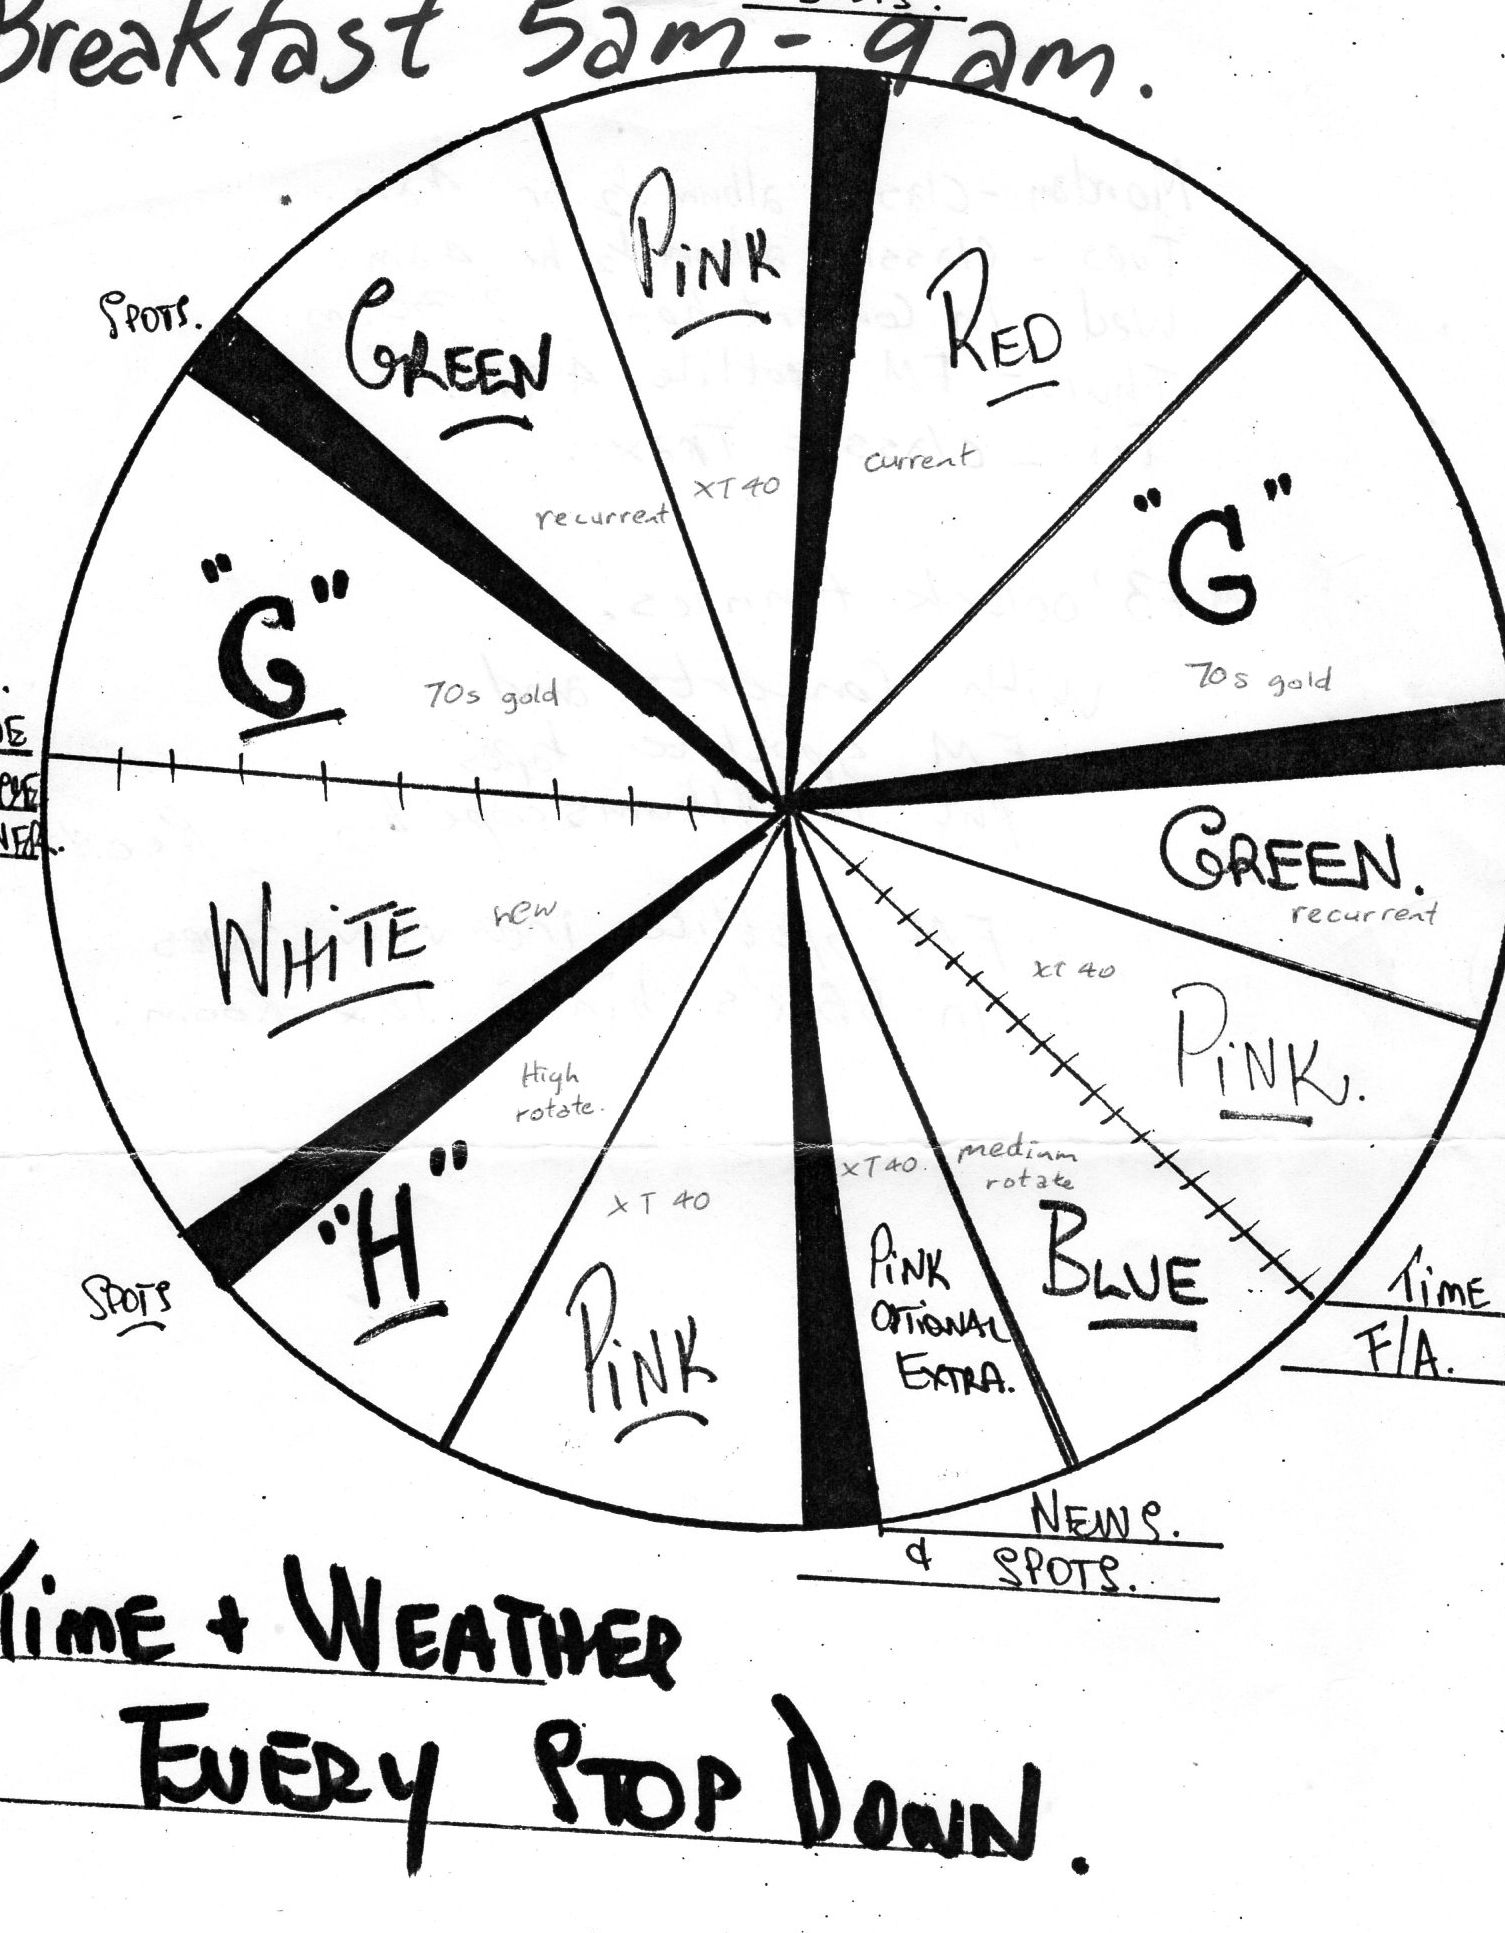 Breakfast 5am - 9am.
PINK
RED
SPOTS.
GREEN
current
XT40
recurrent
"G"
"G"
70s gold
70s gold
GREEN.
recurrent
WHITE
new
XT 40
PINK.
High
rotate.
"H"
XT 40
XT40.
medium
rotate
PINK
OPTIONAL
EXTRA.
BLUE
SPOTS
PINK
TIME
F/A.
NEWS.
& SPOTS.
TIME + WEATHER
EVERY STOP DOWN.